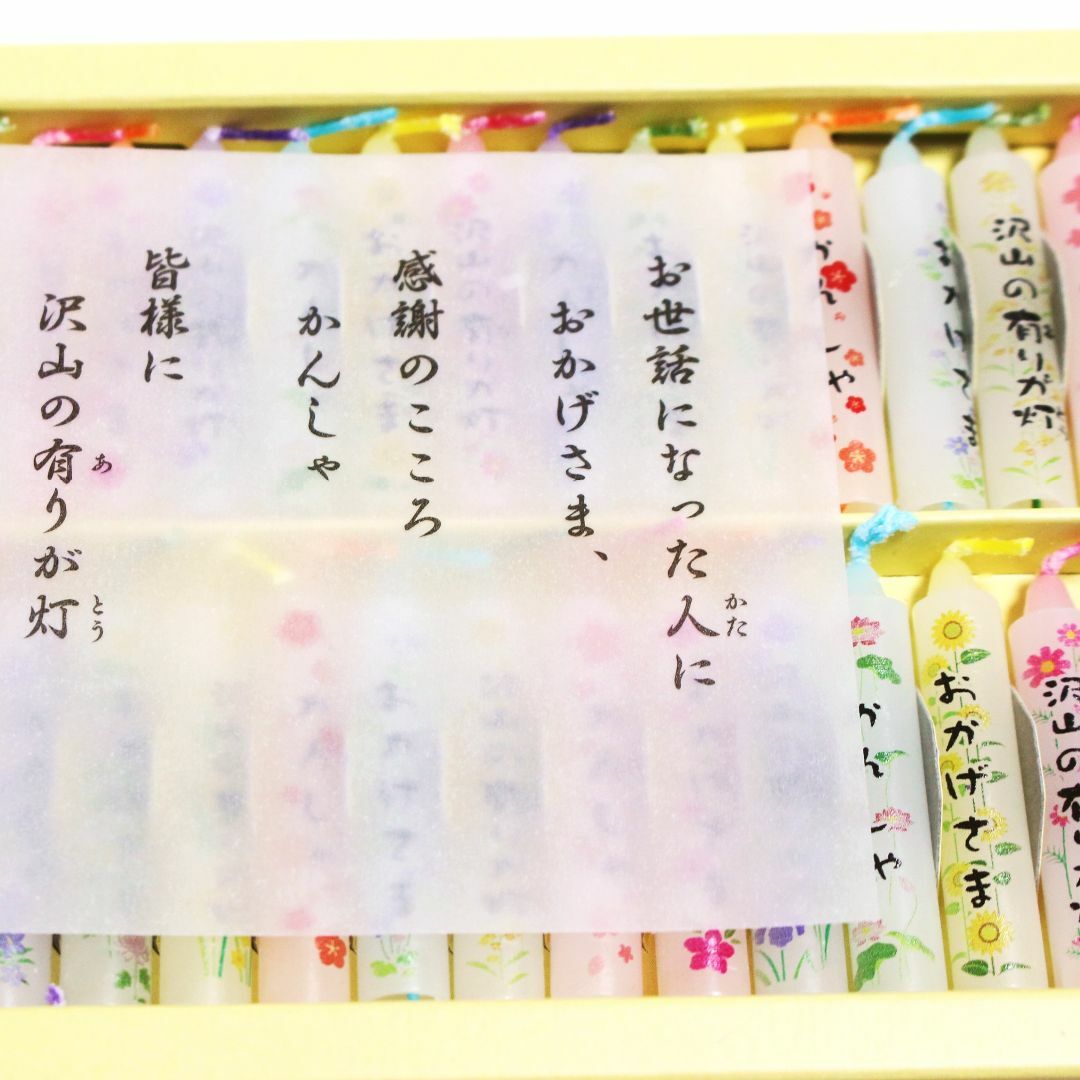 お世話になった人に
かた
おかげさま、
感謝のこころ
かんしゃ
皆様に
沢山の有りが灯
あ
とう
かんしゃ
おかげさま
沢山の有りが灯
かんしゃ
おかげさま
沢山の有りが